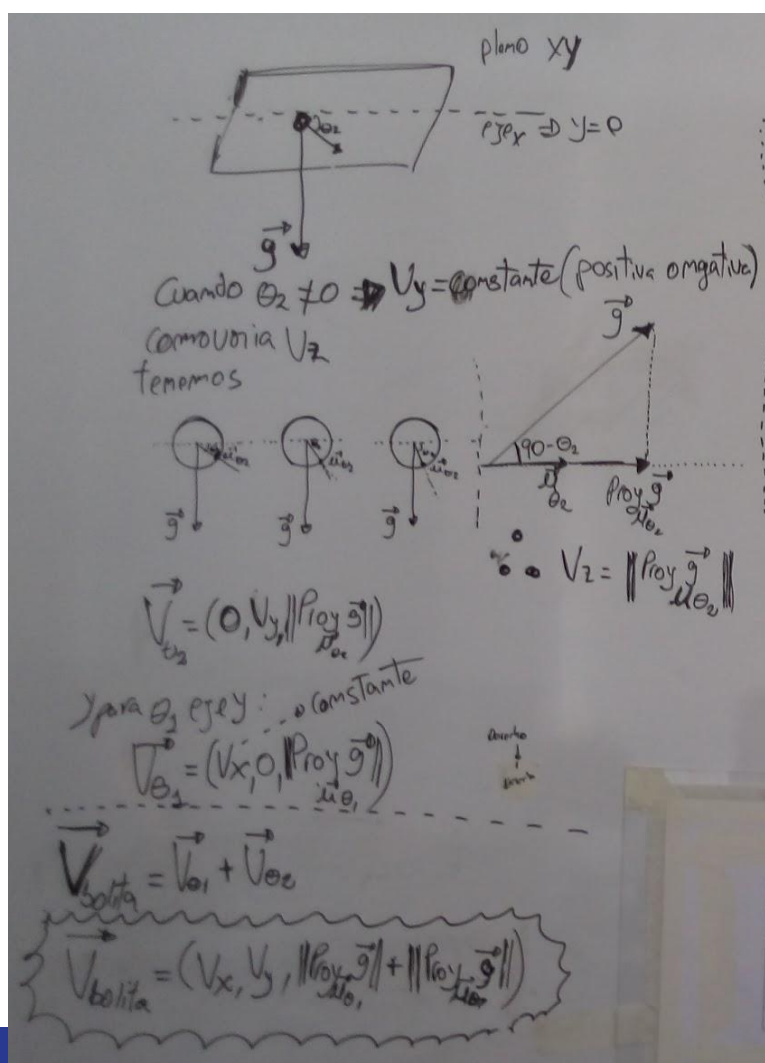 plano xy
eje x ⇒ y=0
θ₂
g⃗
Cuando θ₂ ≠ 0 ⇒ Vy = constante (positiva o mgativa)
como varia Vz
tenemos
g⃗
90-θ₂
μ⃗θ₂
Proy g⃗ μ⃗θ₂
μ⃗θ₂ μ⃗θ₂ μ⃗θ₂
g⃗ g⃗ g⃗
∴ Vz = ||Proy g⃗ μ⃗θ₂||
V⃗θ₂ = (0, Vy, ||Proy g⃗ μ⃗θ₂||)
y para θ₁ eje y: constante
V⃗θ₁ = (Vx, 0, ||Proy g⃗ μ⃗θ₁||)
V⃗bolita = V⃗θ₁ + V⃗θ₂
V⃗bolita = (Vx, Vy, ||Proy g⃗ μ⃗θ₁|| + ||Proy g⃗ μ⃗θ₂||)